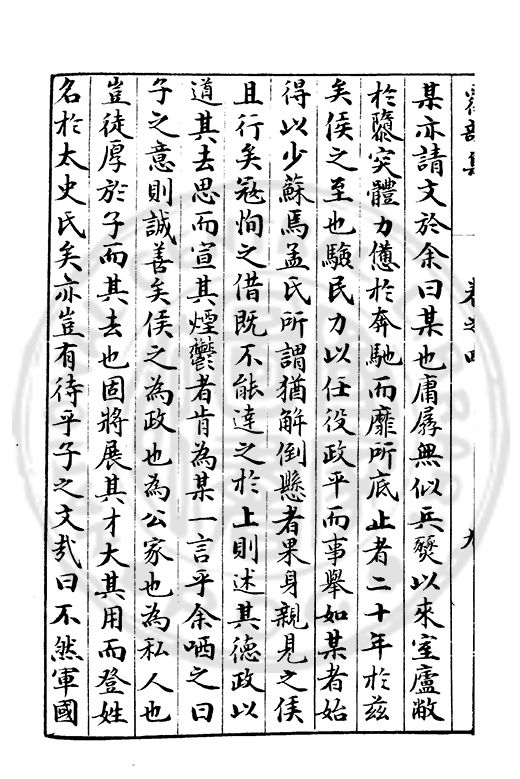 卷之四
九
某亦請文於余曰某也庸孱無似兵燹以來室廬敝
於隳突體力憊於奔馳而靡所底止者二十年於茲
矣侯之至也驗民力以任役政平而事舉如某者始
得以少蘇焉孟氏所謂猶解倒懸者果身親見之侯
且行矣冦恂之借既不能達之於上則述其德政以
道其去思而宣其煙鬱者肯為某一言乎余哂之曰
子之意則誠善矣侯之為政也為公家也為私人也
豈徒厚於子而其去也固將展其才大其用而登姓
名於太史氏矣亦豈有待乎子之文㢤曰不然軍國